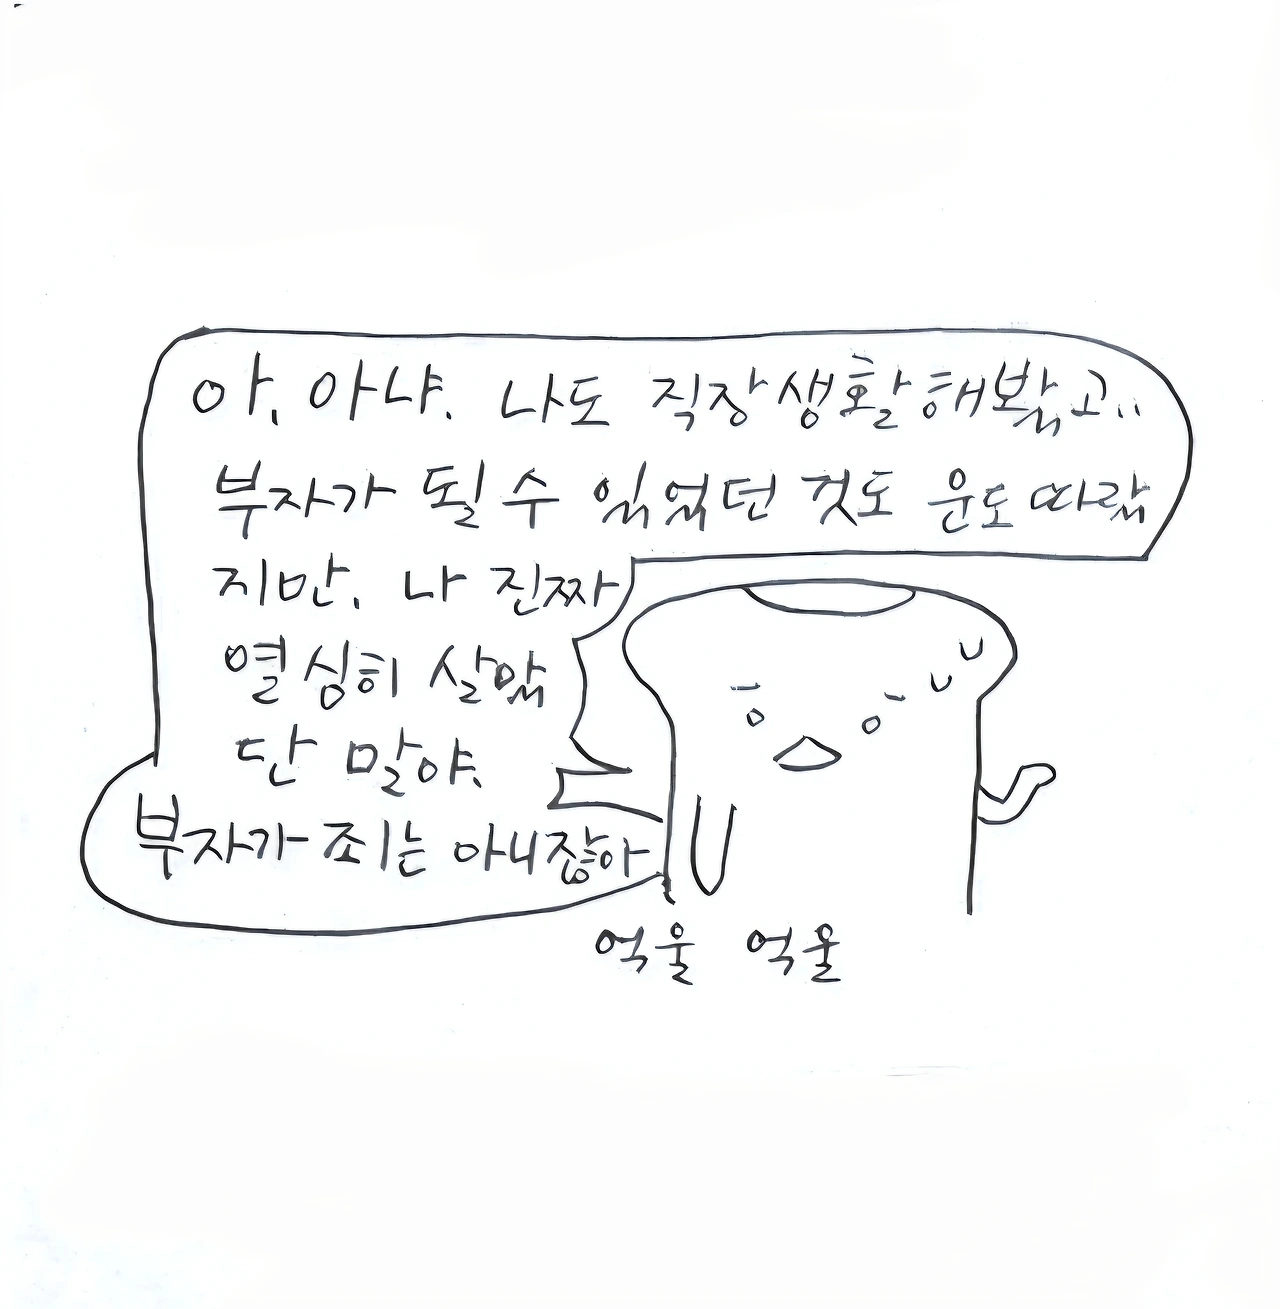 아, 아냐. 나도 직장생활해봤고..
부자가 될 수 있었던 것도 운도 따랐
지만, 나 진짜
열심히 살았
단 말야.
부자가 죄는 아니잖아
억울 억울